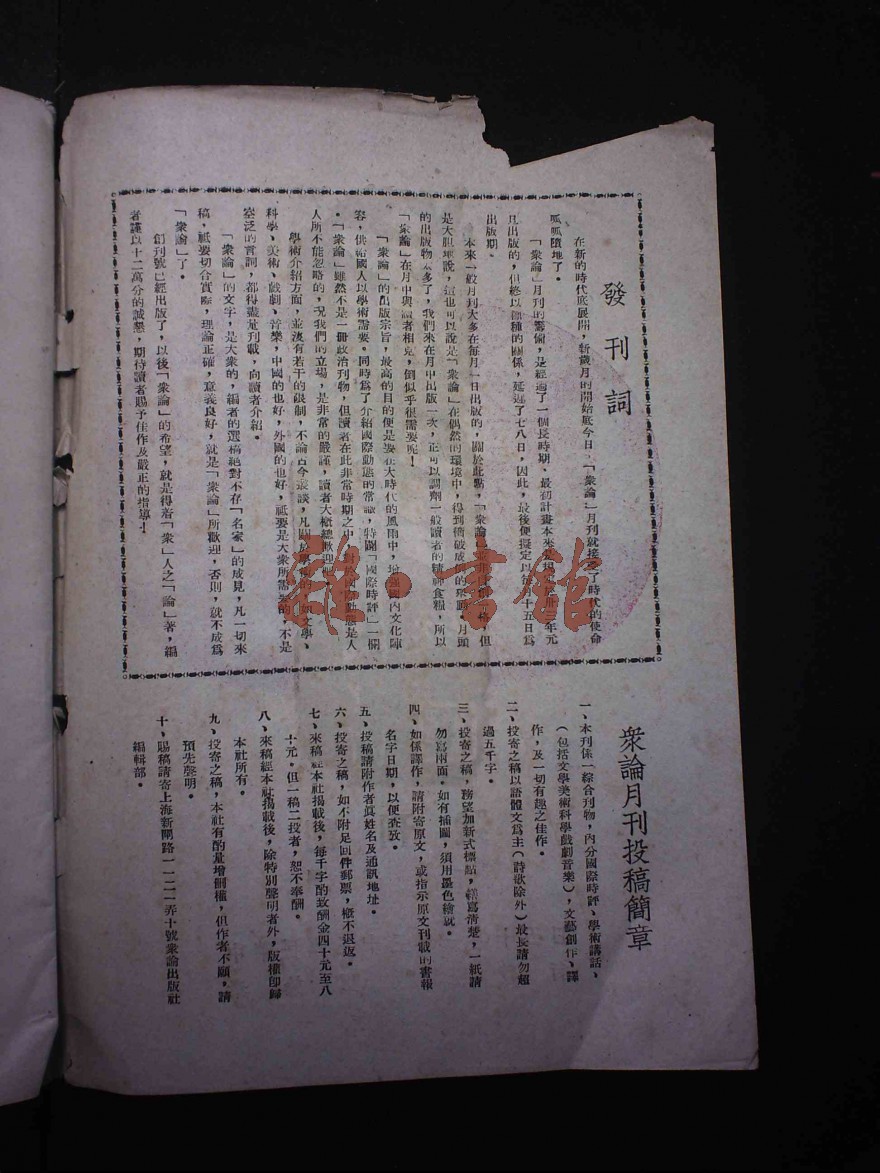 發刊詞
在新的時代底展開,新歲月的開始底今日,「衆論」月刊就接受了時代的使命
呱呱墮地了。
「衆論」月刊的籌備,是經過了一個長時期,最初計畫本來是
年元
旦出版的,但終以種種的關係,延遲了七八日,因此,最後便擬定以每月十五日爲
出版期。
本來一般月刊大多在每月一日出版的,關於此點,「衆論」並非
,但
是大胆地說,這也可以說是「衆論」在偶然的環境中,得到衝破成規的舉動。月頭
的出版物太多了,我們來在月中出版一次,正可以調劑一般讀者的精神食糧,所以
「衆論」在月中與讀者相見,倒似乎很需要呢!
「衆論」的出版宗旨,最高的目的便是要在大時代的風雨中,增强國內文化陣
容,供給國人以學術需要。同時爲了介紹國際動態的常識,特闢「國際時評」一欄
。「衆論」雖然不是一冊政治刊物,但讀者在此非常時期之中,對
國
動態是人
人所不能忽略的,况我們的立場,是非常的嚴謹,讀者大概總歡迎
學術介紹方面,並沒有若干的限制,不論古今
談,凡關於學術的,如文學、
科學,美術,戲劇,音樂,中國的也好,外國的也好,祗要是大衆所需要的,不是
空泛的言詞,都得盡量刊載,向讀者介紹。
「衆論」的文字,是大衆的,編者的選稿絕對不存「名家」的成見,凡一切來
稿,祗要切合實際,理論正確,意義良好,就是「衆論」所歡迎,否則,就不成爲
「衆論」了。
創刊號已經出版了,以後「衆論」的希望,就是得着「衆」人之「論」著,編
者謹以十二萬分的誠懇,期待讀者賜予佳作及嚴正的指導!
衆論月刊投稿簡章
一、本刊係一綜合刊物,內分國際時評、學術講話、
(包括文學美術科學戲劇音樂),文藝創作、譯
作,及一切有趣之佳作。
二、投寄之稿以語體文爲主(詩歌除外)最長請勿超
過五千字。
三、投寄之稿,務望加新式標點,繕寫清楚,一紙請
勿寫兩面。如有插圖,須用墨色繪就。
四、如係譯作,請附寄原文,或指示原文刊載的書報
名字日期,以便查致。
五、投稿請附作者眞姓名及通訊地址。
六、投寄之稿,如不附足回件郵票,概不退返。
七、來稿經本社揭載後,每千字酌致酬金四十元至八
十元。但一稿二投者,恕不奉酬。
八、來稿經本社揭載後,除特別聲明者外,版權卽歸
本社所有。
九、投寄之稿,本社有酌量增刪權,但作者不願,請
預先聲明。
十、賜稿請寄上海新閘路一一二一弄十號衆論出版社
編輯部。
雜·書館